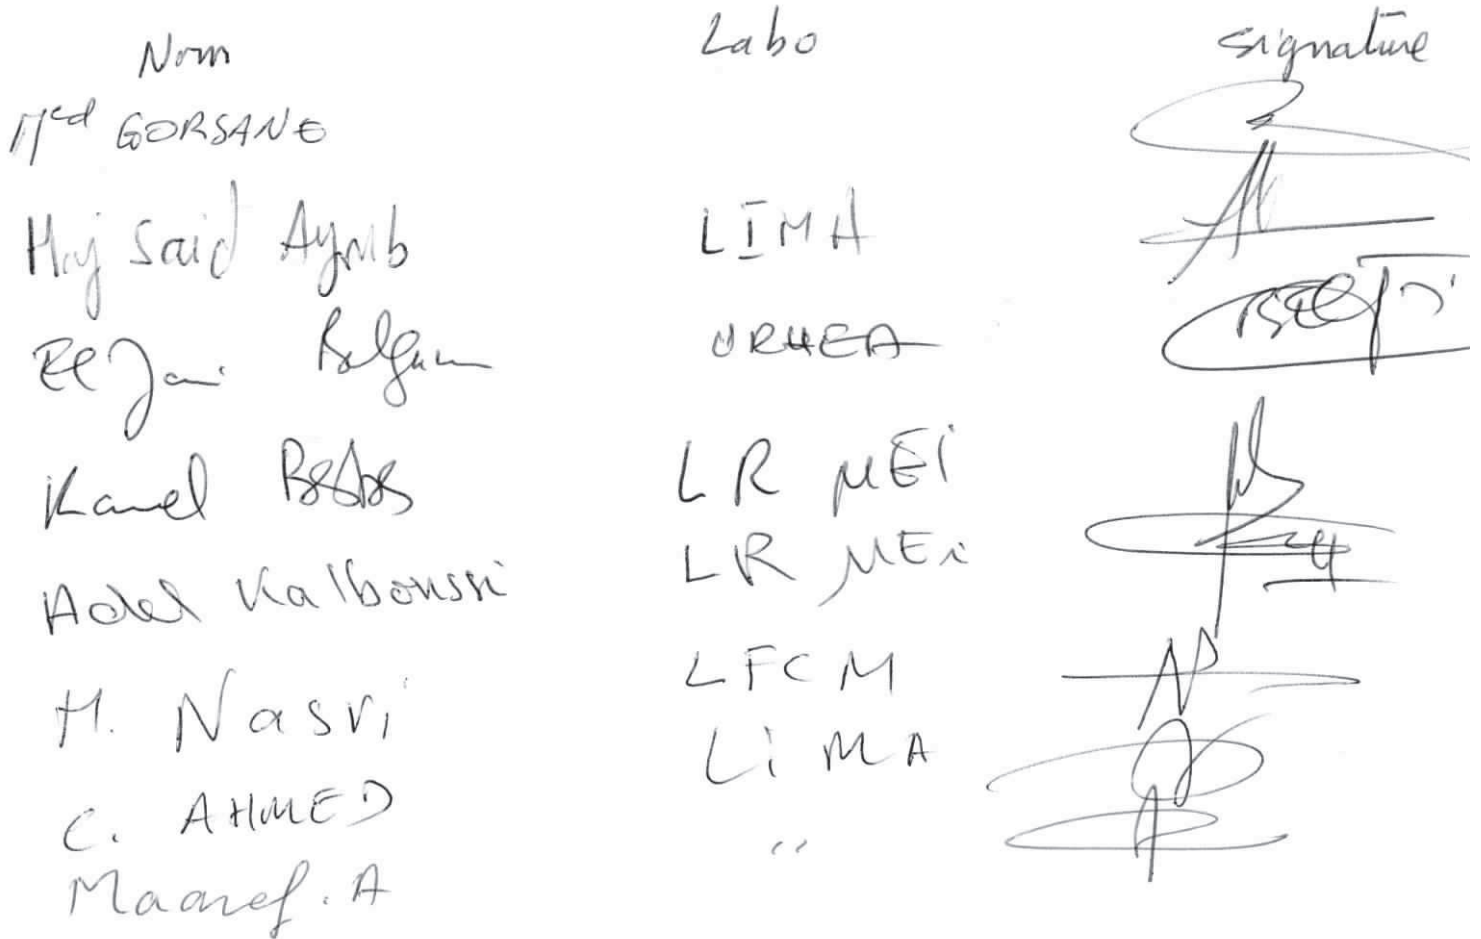 Nom Labo signature
Med GORSANE
Haj Said Ayoub LIMA
El Jani Belgacem URHEA
Kamel Besbes LR µEi
Adel Kalboussi LR µEi
H. Nasri LFCM
C. AHMED LiMA
Maaref. A "